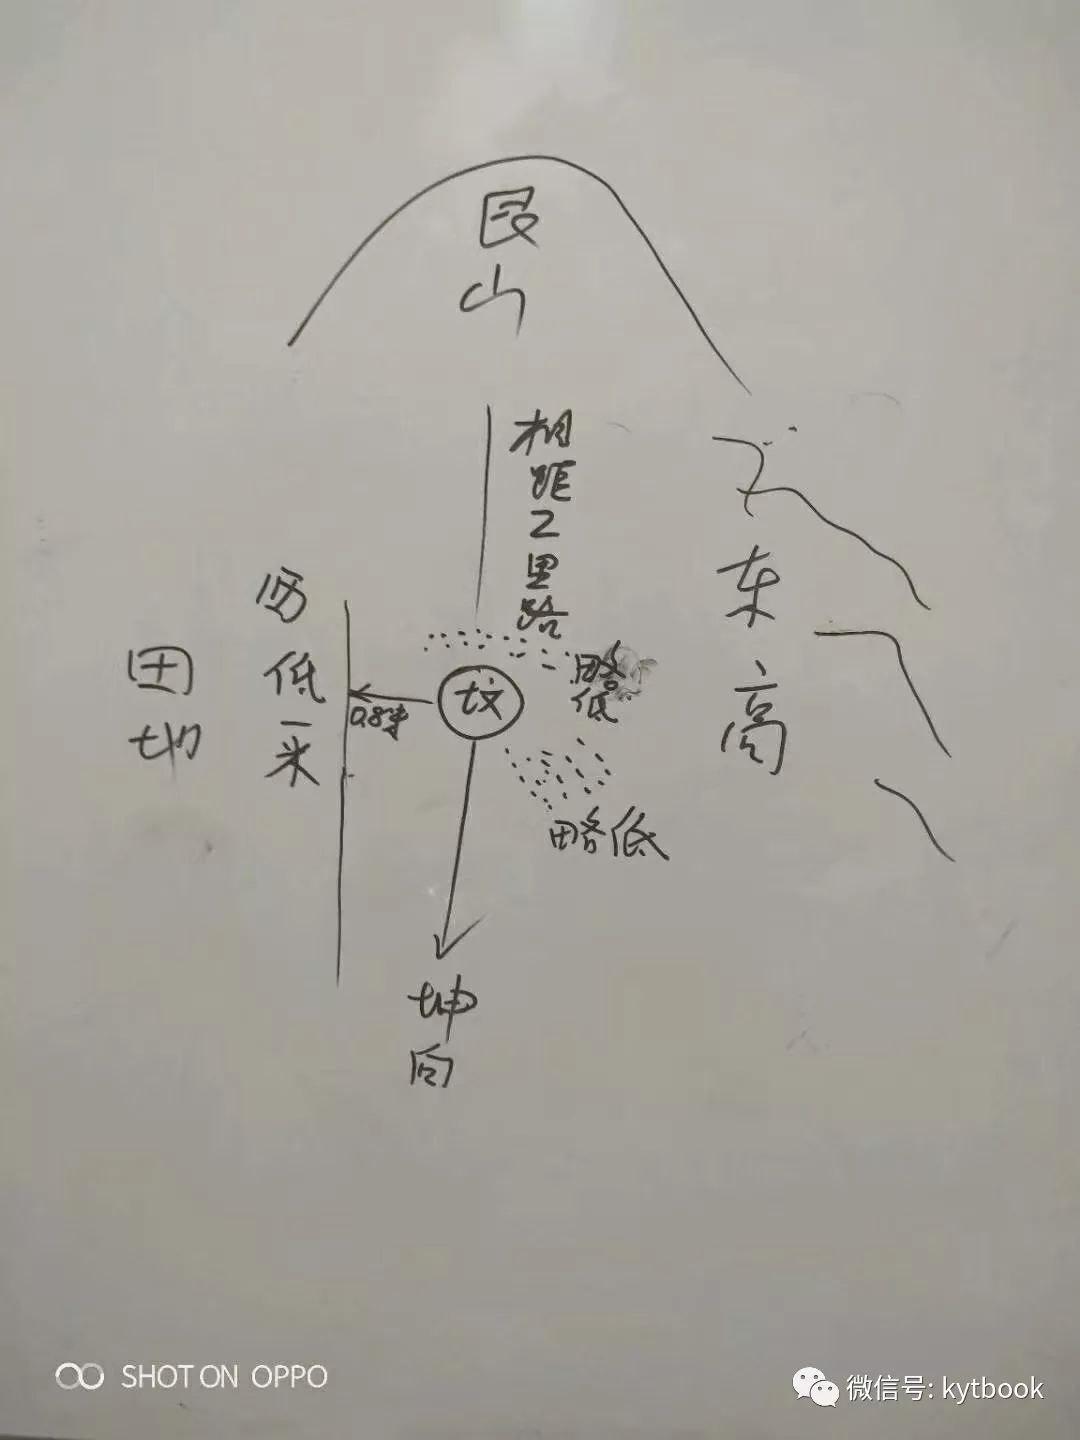 艮山
相距2里路
西低一米
田地
0.8米
坟
略低
东高
略低
坤向
SHOT ON OPPO
微信号: kytbook